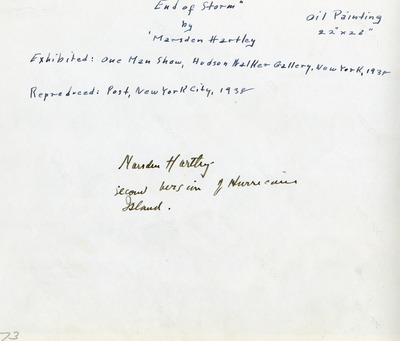 End of Storm"
by
'Marsden Hartley
Oil Painting
22" x 28"
Exhibited: One Man Show, Hudson Walker Gallery, New York, 1938
Reproduced: Post, New York City, 1938
Marsden Hartley
second version of Hurricane
Island.
73